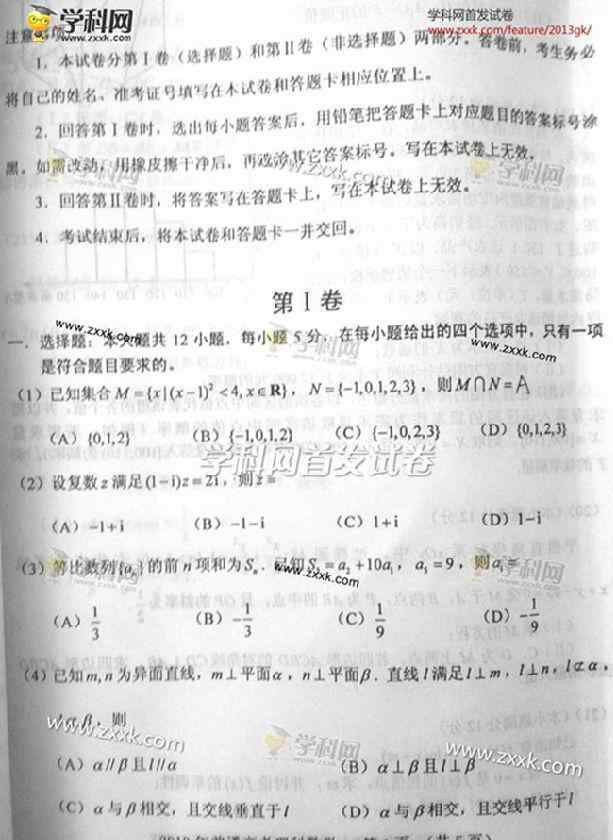 学科网
www.zxxk.com
学科网首发试卷
www.zxxk.com/feature/2013gk/
注意事项
1. 本试卷分第Ⅰ卷（选择题）和第Ⅱ卷（非选择题）两部分。答卷前，考生务必
将自己的姓名、准考证号填写在本试卷和答题卡相应位置上。
2. 回答第Ⅰ卷时，选出每小题答案后，用铅笔把答题卡上对应题目的答案标号涂
黑。如需改动，用橡皮擦干净后，再选涂其它答案标号。写在本试卷上无效。
www.zxxk.com
学科网
3. 回答第Ⅱ卷时，将答案写在答题卡上，写在本试卷上无效。
4. 考试结束后，将本试卷和答题卡一并交回。
第Ⅰ卷
www.zxxk.com
学科网
www.zxxk.com
一. 选择题：本大题共 12 小题，每小题 5 分，在每小题给出的四个选项中，只有一项
是符合题目要求的。
(1) 已知集合 M={x|(x-1)²<4,x∈R}，N={-1,0,1,2,3}，则M∩N=A
(A) {0,1,2} (B) {-1,0,1,2} (C) {-1,0,2,3} (D) {0,1,2,3}
学科网首发试卷
(2) 设复数 z 满足(1-i)z=2i，则z=
(A) -1+i (B) -1-i (C) 1+i (D) 1-i
(3) 等比数列{aₙ}的前 n 项和为Sₙ. 已知S₃=a₂+10a₁，a₅=9，则a₁=
www.zxxk.com
学科网
(A) 1/3 (B) -1/3 (C) 1/9 (D) -1/9
(4) 已知m,n为异面直线，m⊥平面α，n⊥平面β. 直线l满足l⊥m，l⊥n，l⊄α，
l⊄β，则
www.zxxk.com
学科网
www.zxxk.com
(A) α//β且l//α (B) α⊥β且l⊥β
(C) α与β相交，且交线垂直于l (D) α与β相交，且交线平行于l